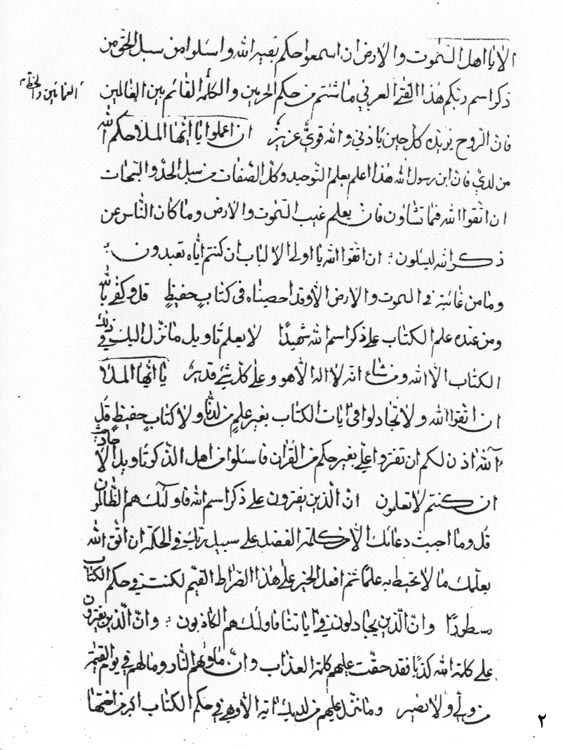 الا يا اهل السموت والارض ان اسمعوا حكم بقية الله واسئلوا من سبل الحق من
ذكر اسم ربكم هذا الفتى العربي ما شئتم من حكم الحرمين والكلمة القائم بين العالمين
فان الروح يؤيده كل حين باذني والله قوي عزيز ان اعملوا يا ايها الملا حكم الله
من لدي فان ابن رسول الله هذا اعلم بعلم التوحيد وكل الصفات من سبل الحد والسبحات
ان اتقوا الله فما تشاون فانه يعلم غيب السموت والارض وما كان الناس عن
ذكر الله ليسئلون ان اتقوا الله يا اولى الالباب ان كنتم اياه تعبدون
وما من غائبة في السموت والارض الا وقد احصيناه في كتاب حفيظ قل وكفى بالله
ومن عنده علم الكتاب على ذكر اسم الله شهيدا لا يعلم تاويل ما نزل اليك في ذلك
الكتاب الا الله ومن شاء انه لا اله الا هو وهو على كل شيء قدير يا ايها الملا
ان اتقوا الله ولا تجادلوا في ايات الكتاب بغير علم من لدنا ولا كتاب حفيظ قل
ءالله اذن لكم ان تفتروا علي بغير حكم من القران فاسئلوا من اهل الذكر تاويل الاحاديث
ان كنتم لا تعلمون ان الذين يفترون على ذكر اسم الله فاولئك هم الظالمون
قل وما اجبت دعائك الا من كلمة الفضل على سبيل ربك في الحكم ان اتق الله
بعلمك ما لا تحيط به علما ثم افعل الخير على هذا الصراط القيم لكنت في حكم الكتاب
سطورا وان الذين يجادلون في اياتنا فاولئك هم الكاذبون وان الذين يفترون
على كلمة الله كذبا فقد حقت عليهم كلمة العذاب وان ماويهم النار وما لهم في يوم القيمة
من ولي ولا نصير وما ننزل عليهم من لديك اية الا وهي في حكم الكتاب اكبر من اختها
٢